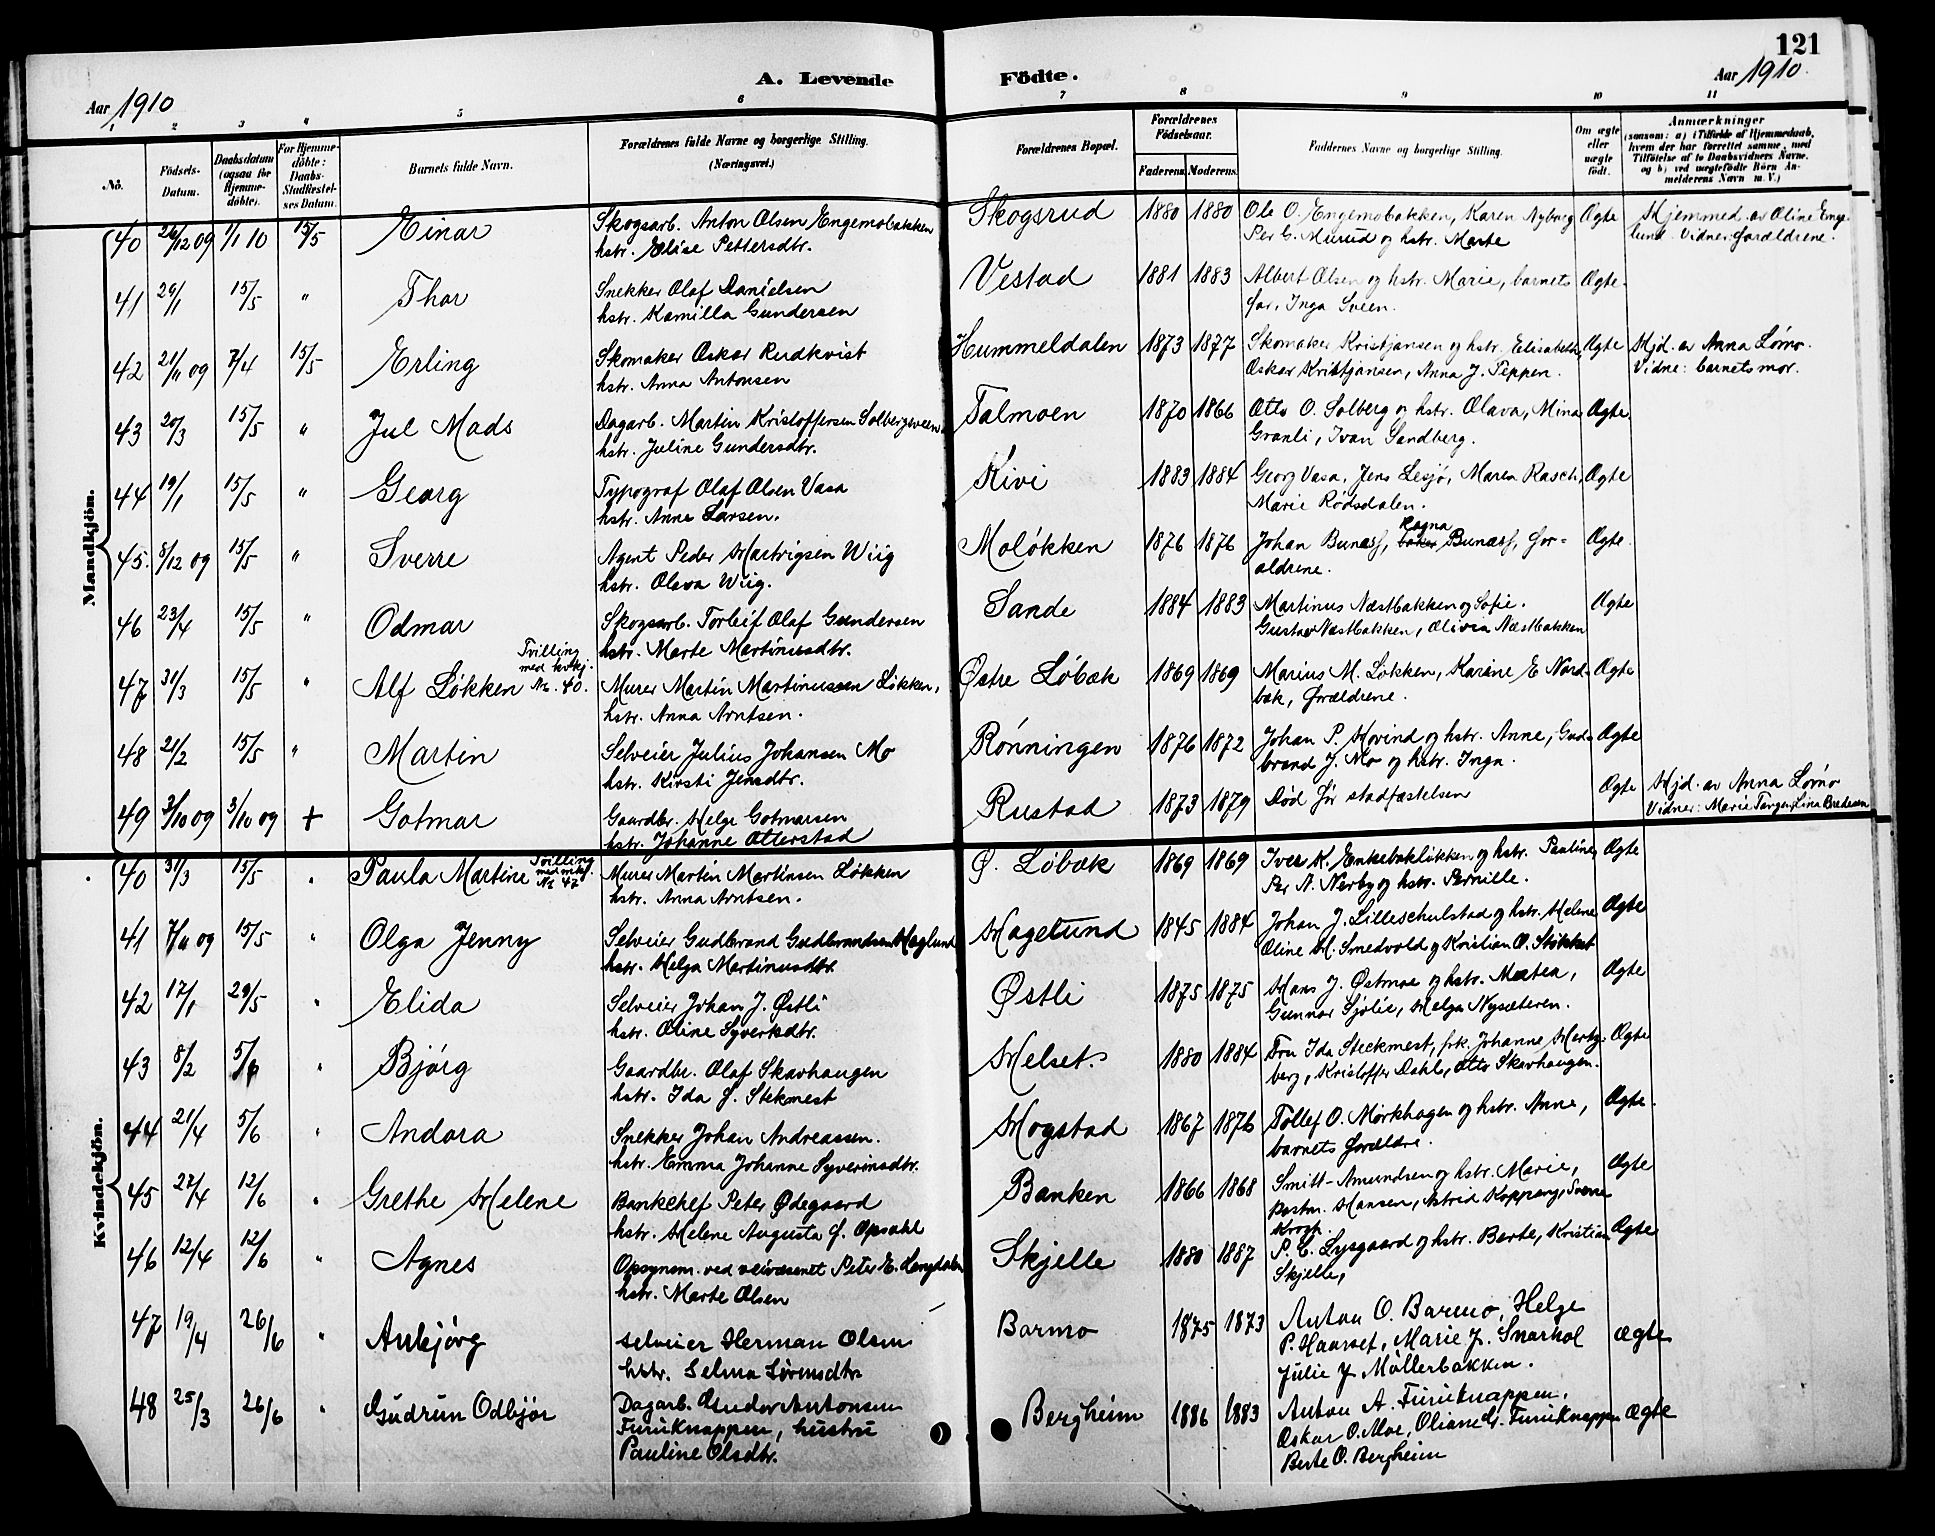 121
A. Levende Födte.
Aar 1910
Aar 1910.
1 2 3 4 5 6 7 8 9 10 11
Nô.
Födsels-Datum.
Daabsdatum (ogsaa for Hjemme-döbte).
For Hjemme-döbte: Daabs-Stadfæstel-ses Datum.
Barnets fulde Navn.
Forældrenes fulde Navne og borgerlige Stilling.
(Næringsvei.)
Forældrenes Bopæl.
Forældrenes Födselsaar.
Faderens. Moderens.
Faddernes Navne og borgerlige Stilling.
Om ægte eller uægte födt.
Anmærkninger
(saasom: a) i Tilfælde af Hjemmedaab, hvem der har forrettet samme, med Tilföielse af to Daabsvidners Navne, og b) ved uægtefödte Börn An-melderens Navn m. V.)
Mandkjön.
40 26/12 09 1/1 10 15/5 Einar Skogsarb. Anton Olsen Engemobakken Skogsrud 1880 1880 Ole O. Engemobakken, Karen Nyborg Ægte Hjemmed. av Oline Enge-
hstr. Elise Pettersdtr. Per C. Murud og hstr. Marte lund. Vidner: forældrene.
41 29/1 15/5 " Thor Snekker Olaf Danielsen Vestad 1881 1883 Albert Olsen og hstr. Marie, barnets Ægte.
hstr. Kamilla Gundersen far, Inga Sveen.
42 21/11 09 7/4 15/5 Erling Skomaker Oskar Rudkvist Hummeldalen 1873 1877 Skomaker Kristjansen og hstr. Elisabeth, Ægte Hjd. av Anna Lømo.
hstr. Anna Antonsen Oskar Kristjansen, Anna J. Teppen. Vidne: barnets mor.
43 20/3 15/5 " Jul Mads Dagarb. Martin Kristoffersen Solbergsveen Talmoen 1870 1866 Otto O. Solberg og hstr. Olava, Mina Ægte
hstr. Juline Gundersdtr. Granli, Ivan Sandberg.
44 19/1 15/5 " Georg Typograf Olaf Olsen Vasa Kivi 1883 1884 Georg Vasa, Jens Lesjø, Maren Rasch, Ægte
hstr. Anna Larsen. Marie Rødsdalen.
45. 8/12 09 15/5 " Sverre Agent Peder Hartvigsen Wiig Moløkken 1876 1876 Johan Bunæs, Ragna Bunæs, for- Ægte.
hstr. Olava Wiig. ældrene.
46 23/4 15/5 " Odmar Skogsarb. Torleif Olaf Gundersen Sande 1884 1883 Martinus Næstbakken og Sofie. Ægte
hstr. Marte Martinusdtr. Gustav Næstbakken, Olivia Næstbakken
47 31/3 15/5 " Alf Løkken Tvilling med kvkj. Nr. 40. Murer Martin Martinussen Løkken, Østre Løbæk 1869 1869 Marius M. Løkken, Karine E Nord- Ægte
hstr. Anna Arntsen. bæk, forældrene.
48 21/2 15/5 " Martin Selveier Julius Johansen Mo Rønningen 1876 1872 Johan P. Hovind og hstr. Anne, Gud- Ægte
hstr. Kirsti Jensdtr. brand J. Mo og hstr. Inga.
49 3/10 09 3/10 09 + Gotmar Gaardbr. Helge Gotmarsen Rustad 1873 1879 Død før stadfæstelsen Ægte Hjd. av Anna Lømo
hstr. Johanne Otterstad Vidner: Marie Tangen, Lina Bredesen
Kvindekjön.
40 31/3 15/5 " Paula Martine Tvilling med mkj. Nr 47 Murer Martin Martinsen Løkken Ø. Løbæk 1869 1869 Iver K. Enkebakløkken og hstr. Pauline, Ægte
hstr. Anna Arntsen. Per A. Nerby og hstr. Pernille.
41 7/11 09 15/5 " Olga Jenny Selveier Gudbrand Gudbrandsen Haglund Hagelund 1845 1884 Johan J. Lilleschulstad og hstr. Helene Ægte
hstr. Helga Martinusdtr. Oline H. Smedvold og Kristian O. Stikket
42 17/1 29/5 " Elida Selveier Johan J. Østli Østli 1875 1875 Hans J. Østmoe og hstr. Mætea, Ægte
hstr. Oline Syversdtr. Gunnar Sjølie, Helga Nysæteren.
43 8/2 5/6 " Bjørg Gaardbr. Olaf Skavhaugen Helset. 1880 1884 Fru Ida Steckmest, frk. Johanne Herby- Ægte
hstr. Ida f. Stekmest berg, Kristoffer Dahl, Otto Skavhaugen.
44 21/4 5/6 " Andora Snekker Johan Andreassen. Hogstad 1867 1876 Tollef O. Mørkhagen og hstr. Anne, Ægte.
hstr. Emma Johanne Syverinsdtr. barnets forældre.
45 27/4 12/6 " Grethe Helene Bankchef Peter Ødegaard Banken 1866 1868 Smitt-Amundsen og hstr. Marie, Ægte
hstr. Helene Augusta f. Opsahl Postm. Hansen, Astrid Koppang, Sverre Krogh.
46 12/4 12/6 " Agnes Opsynsm. ved veivæsenet Peter E. Hengdalen Skjelle 1880 1887 P. C. Lysgaard og hstr. Berte, Kristian Ægte
hstr. Marte Olsen Skjelle,
47 19/4 26/6 " Anbjørg Selveier Herman Olsen Barmo 1875 1873 Anton O. Barmo, Helge
hstr. Selma Lørensdtr P. Haarset, Marie J. Snarhol ægte
Julie J Møllerbakken.
48 25/3 26/6 " Gudrun Odbjør Dagarb. Gundor Antonsen Bergheim 1886 1883 Anton A. Furuknappen.
Furuknappen, hustru Oskar O. Moe, Oliane G. Furuknappen ægte
Pauline Olsdtr. Berte O. Bergheim